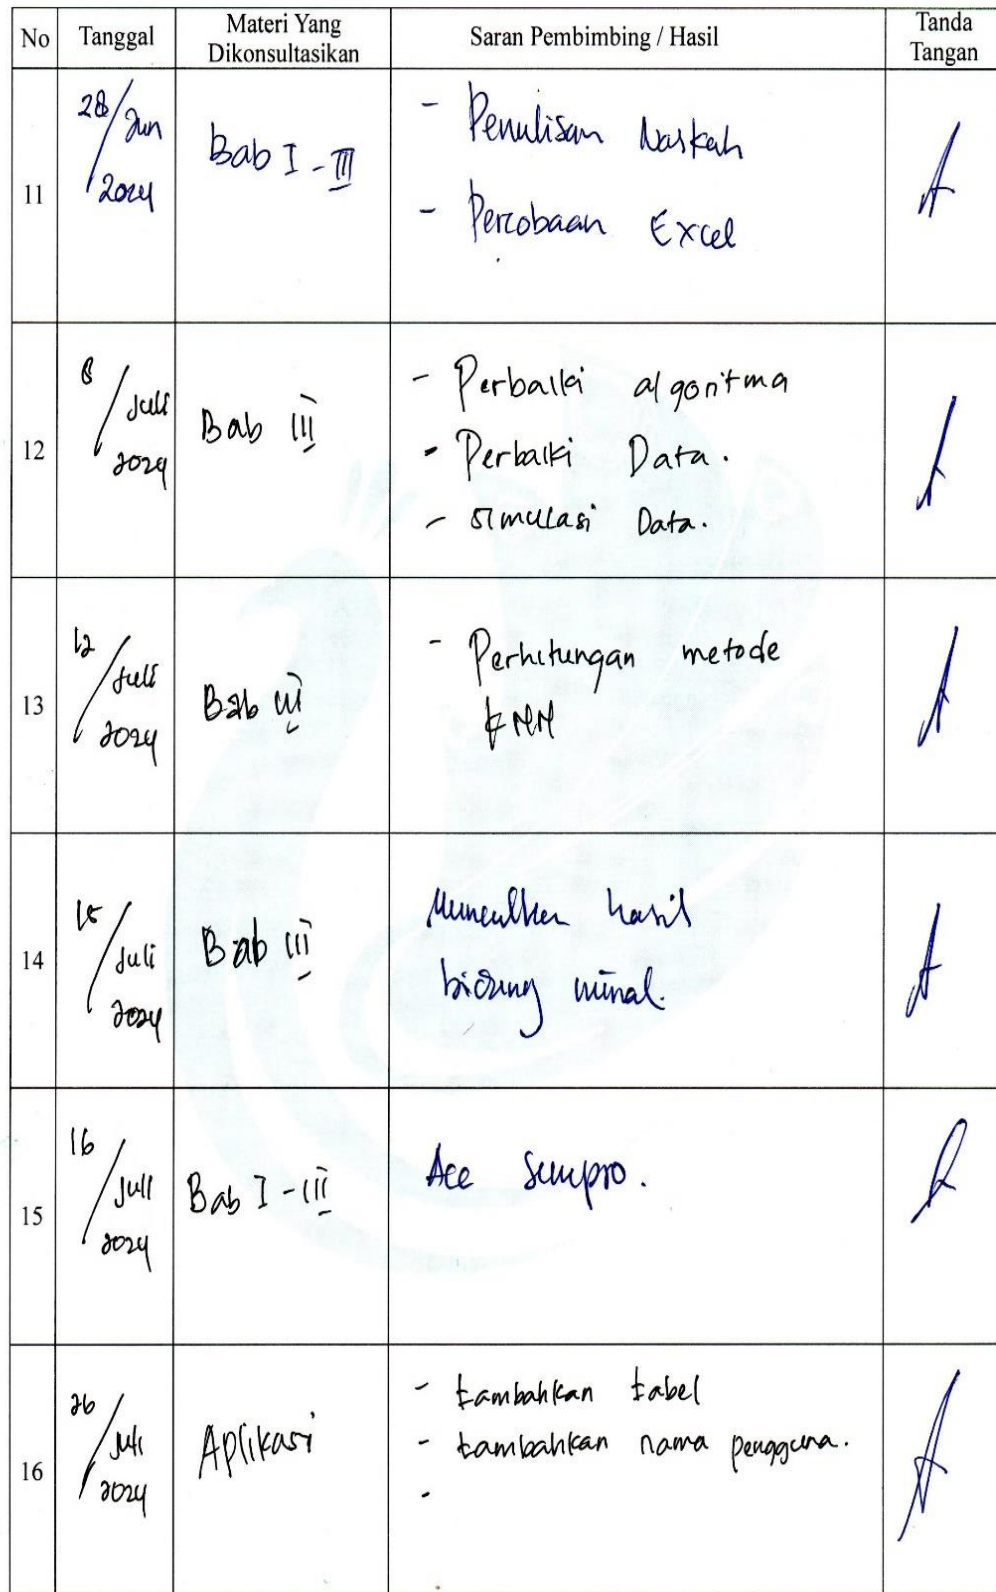 No Tanggal Materi Yang Dikonsultasikan Saran Pembimbing / Hasil Tanda Tangan
11 28/Jun 2024 Bab I - III
- Penulisan Naskah
- Percobaan Excel
12 8/Juli 2024 Bab III
- Perbaiki algoritma
- Perbaiki Data.
- simulasi Data.
13 12/Juli 2024 Bab III
- Perhitungan metode
KNN
14 15/Juli 2024 Bab III
Munculkan hasil
14 15/Juli 2024 Bab III
15 16/Juli 2024 Bab I - III
Acc Sempro.
16 26/Juli 2024 Aplikasi
- tambahkan tabel
- tambahkan nama pengguna.
-